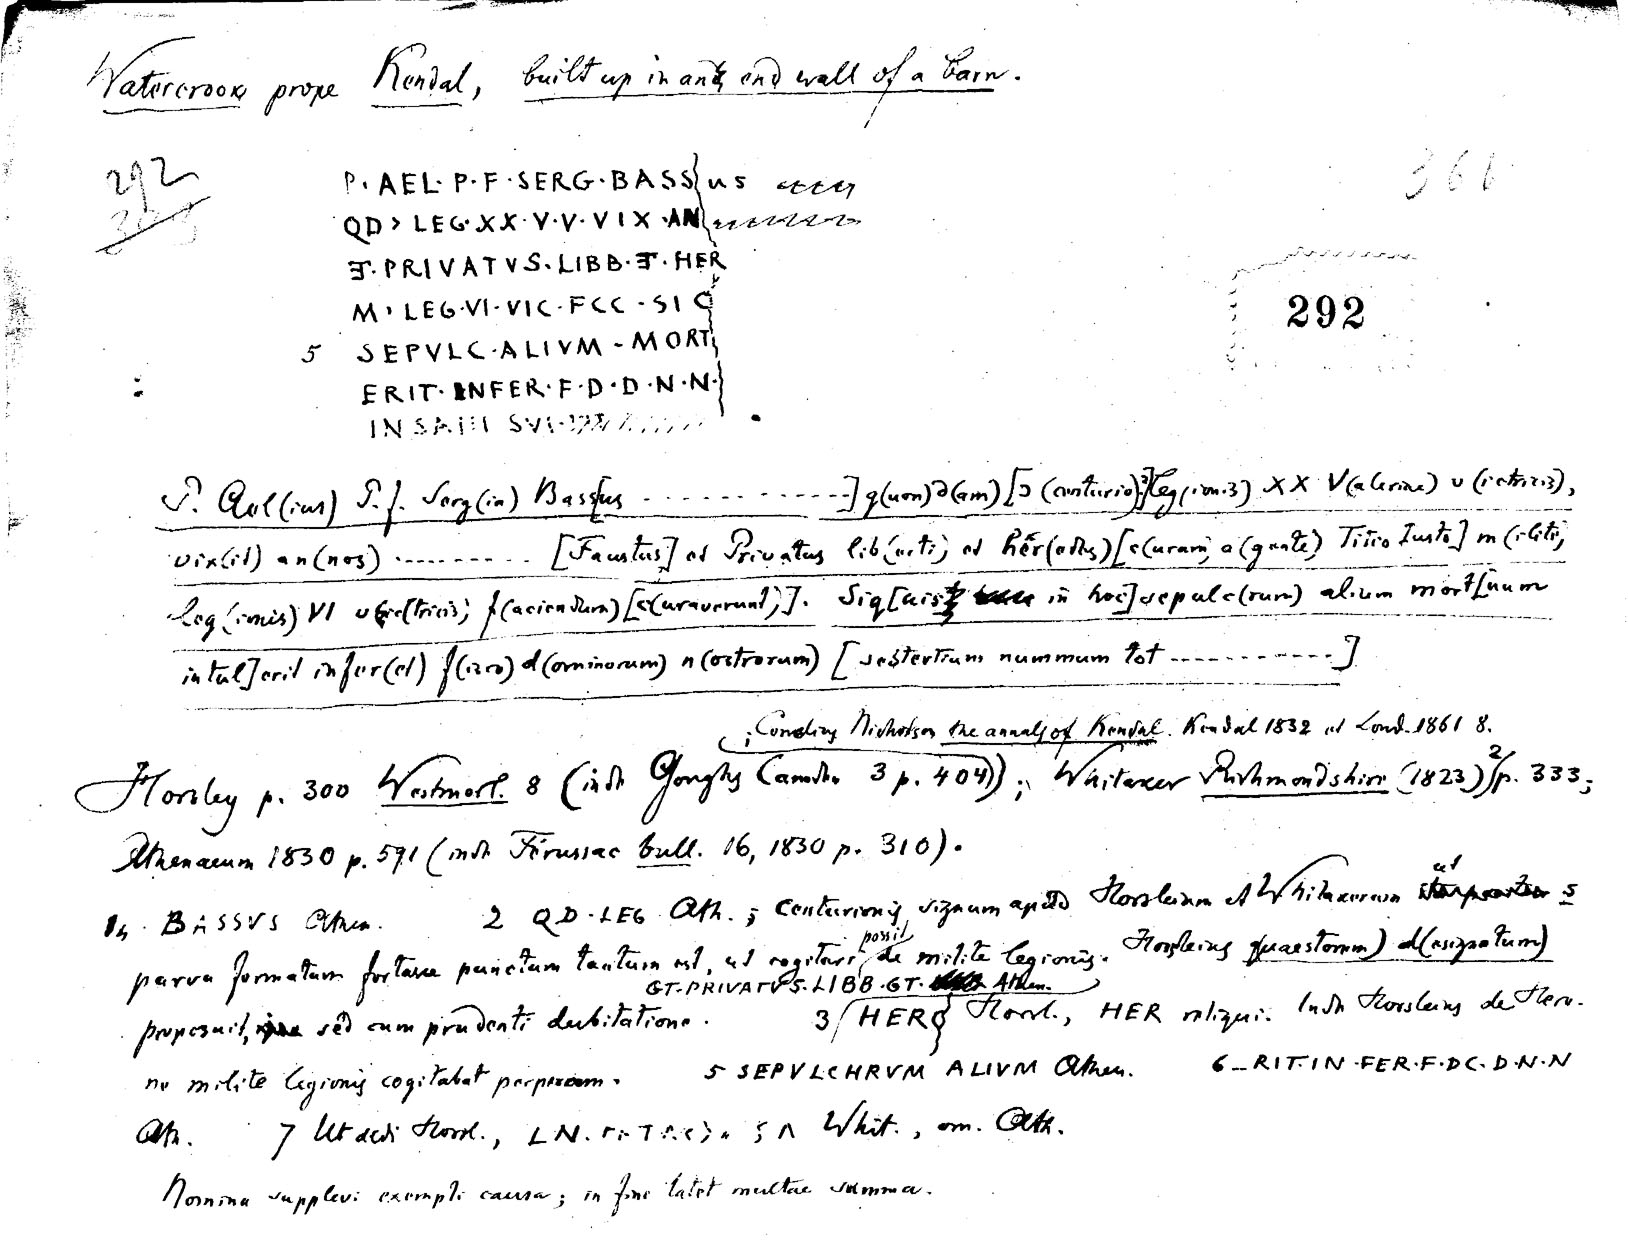 Watercrook prope Kendal, built up in an end wall of a barn.
292
366
P. AEL. P. F. SERG. BASS us
QD > LEG. XX. V. V. VIX. AN
ET. PRIVATVS. LIBB. ET. HER
292
M. LEG. VI. VIC. FCC - SI C
5 SEPVLC. ALIVM - MORT
ERIT. INFER. F. D. D. N. N.
INSAIII SVI
P. Ael(ius) P. f. Serg(ia) Bass[us ..........] q(uon)d(am) [Ɔ (centurio)?] leg(ionis) XX V(aleriae) v(ictricis),
vix(it) an(nos) ........ [Faustus] et Privatus lib(erti) et her(edes) [c(uram) a(gente) Titio Iusto] m(ilite)
leg(ionis) VI vic(tricis) f(aciendum) [c(uraverunt)]. Siq[uis in hoc] sepulc(rum) alium mort[uum
intul]erit infer(et) f(isco) d(ominorum) n(ostrorum) [sestertium nummum tot ............]
; Cornelius Nicholson the annals of Kendal. Kendal 1832 et Lond. 1861 8.
Horsley p. 300 Westmorl. 8 (inde Goughs Camden 3 p. 404); Whitaker Richmondshire (1823) 2 p. 333;
Athenaeum 1830 p. 591 (inde Férussac bull. 16, 1830 p. 310).
1 BASSVS Athen. 2 QD. LEG Ath.; centurionis signum apud Horsleium et Whitakerum ut s
parva formatum fortasse punctum tantum est, ut cogitari possit de milite legionis. Horsleius q(uaestorem) d(esignatum)
GT. PRIVATVS. LIBB. GT. Athen.
proposuit, sed cum prudenti dubitatione. 3 HER Horsl., HER reliqui. Inde Horsleius de Heren-
nio milite legionis cogitabat perperam. 5 SEPVLCHRVM ALIVM Athen. 6 - RIT. IN. FER. F. DC. D. N. N
Ath. 7 Ut dedi Horsl., LN. Whit., om. Ath.
Nomina supplevi exempli causa; in fine latet multae summa.